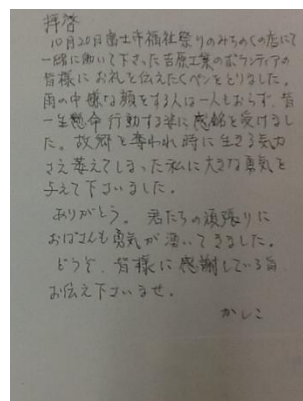 拝啓
10月20日富士市福祉祭りのみちのくの店にて
一緒に働いて下さった吉原工業のボランティアの
皆様にお礼を伝えたくペンをとりました。
雨の中嫌な顔をする人は一人もおらず、皆
一生懸命行動する姿に感銘を受けまし
た。故郷を奪われ時に生きる気力
さえ萎えてしまった私に大きな勇気を
与えて下さいました。
ありがとう。君たちの頑張りに
おばさんも勇気が湧いてきました。
どうぞ、皆様に感謝している旨、
お伝え下さいませ。
かしこ